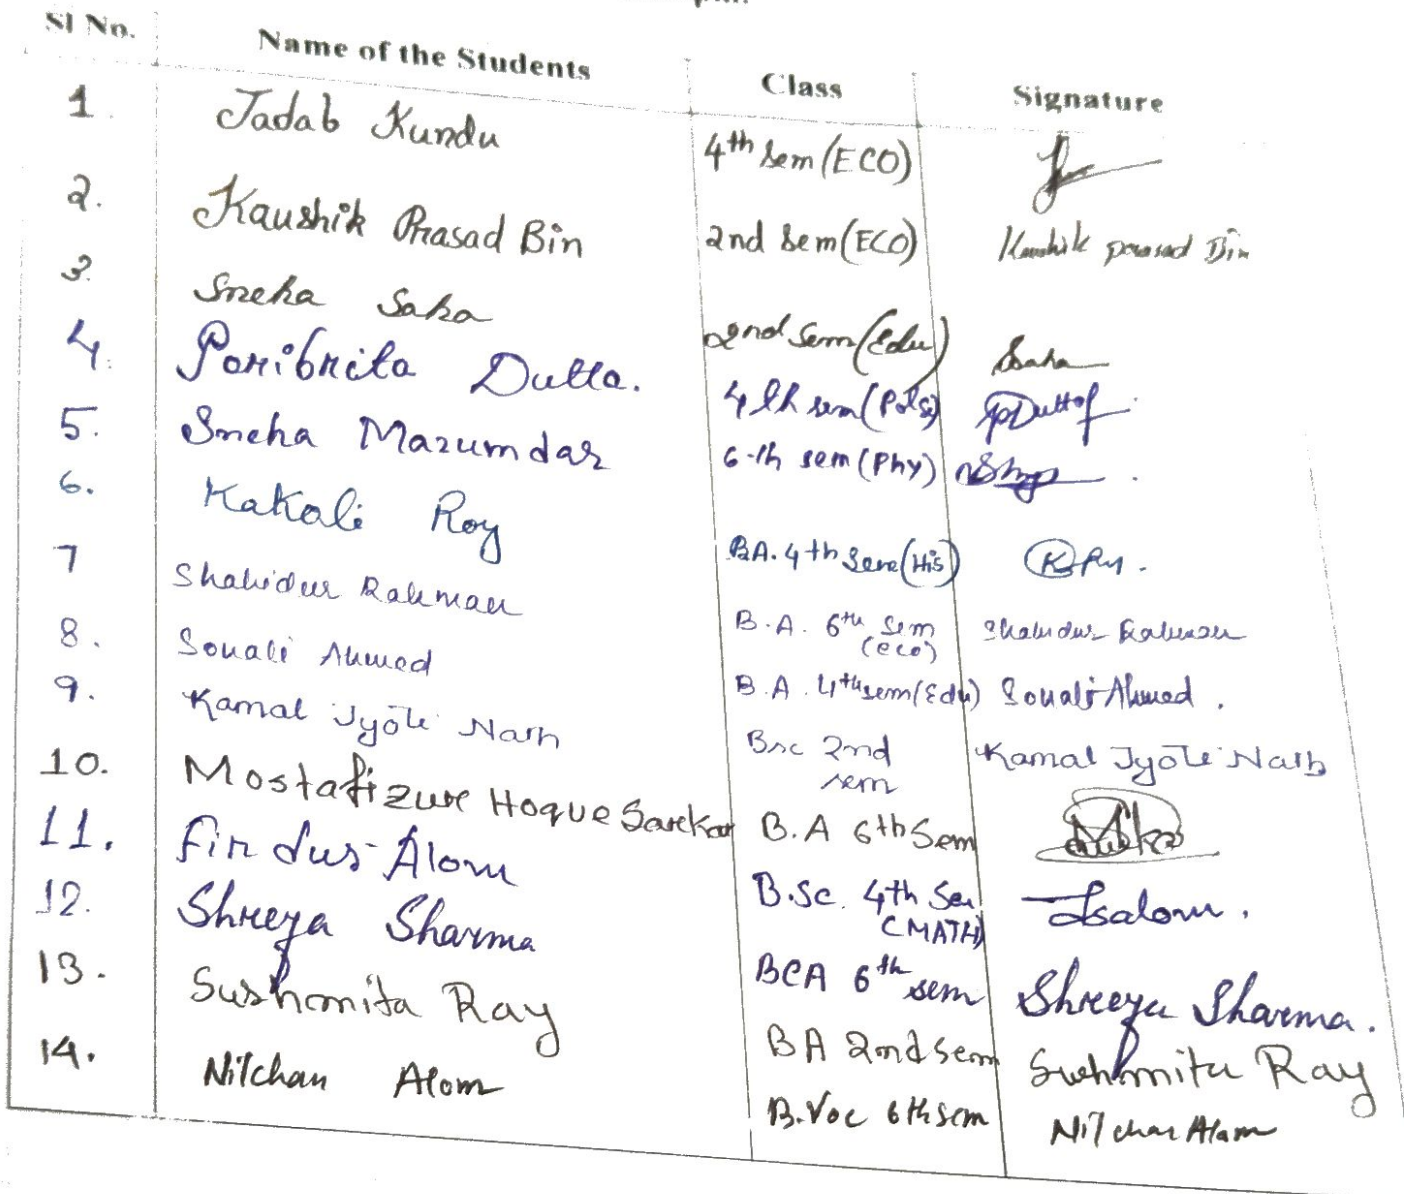 Sl No. Name of the Students Class Signature
1. Jadab Kundu 4th Sem (ECO)
2. Kaushik Prasad Bin 2nd Sem (ECO) Kaushik prasad Bin
3. Sneha Saha 2nd Sem (Edu) Saha
4. Poribrita Dutta. 4th sem (Pol Sc) PDutta
5. Sneha Mazumdar 6th sem (Phy)
6. Kakali Roy BA. 4th Sem (His) K Roy.
7 Shahidur Rahman B.A. 6th Sem (eco) Shahidur Rahman
8. Sonali Ahmed B.A. 4th sem (Edu) Sonali Ahmed.
9. Kamal Jyoti Nath Bsc 2nd sem Kamal Jyoti Nath
10. Mostafizur Hoque Sarkar B.A 6th Sem
11. Firdus Alom B.Sc. 4th Sem (MATH) Fsalom.
12. Shreya Sharma BCA 6th sem Shreya Sharma.
13. Sushmita Ray BA 2nd Sem Sushmita Ray
14. Nilchan Alom B.Voc 6th sem Nilchan Alam